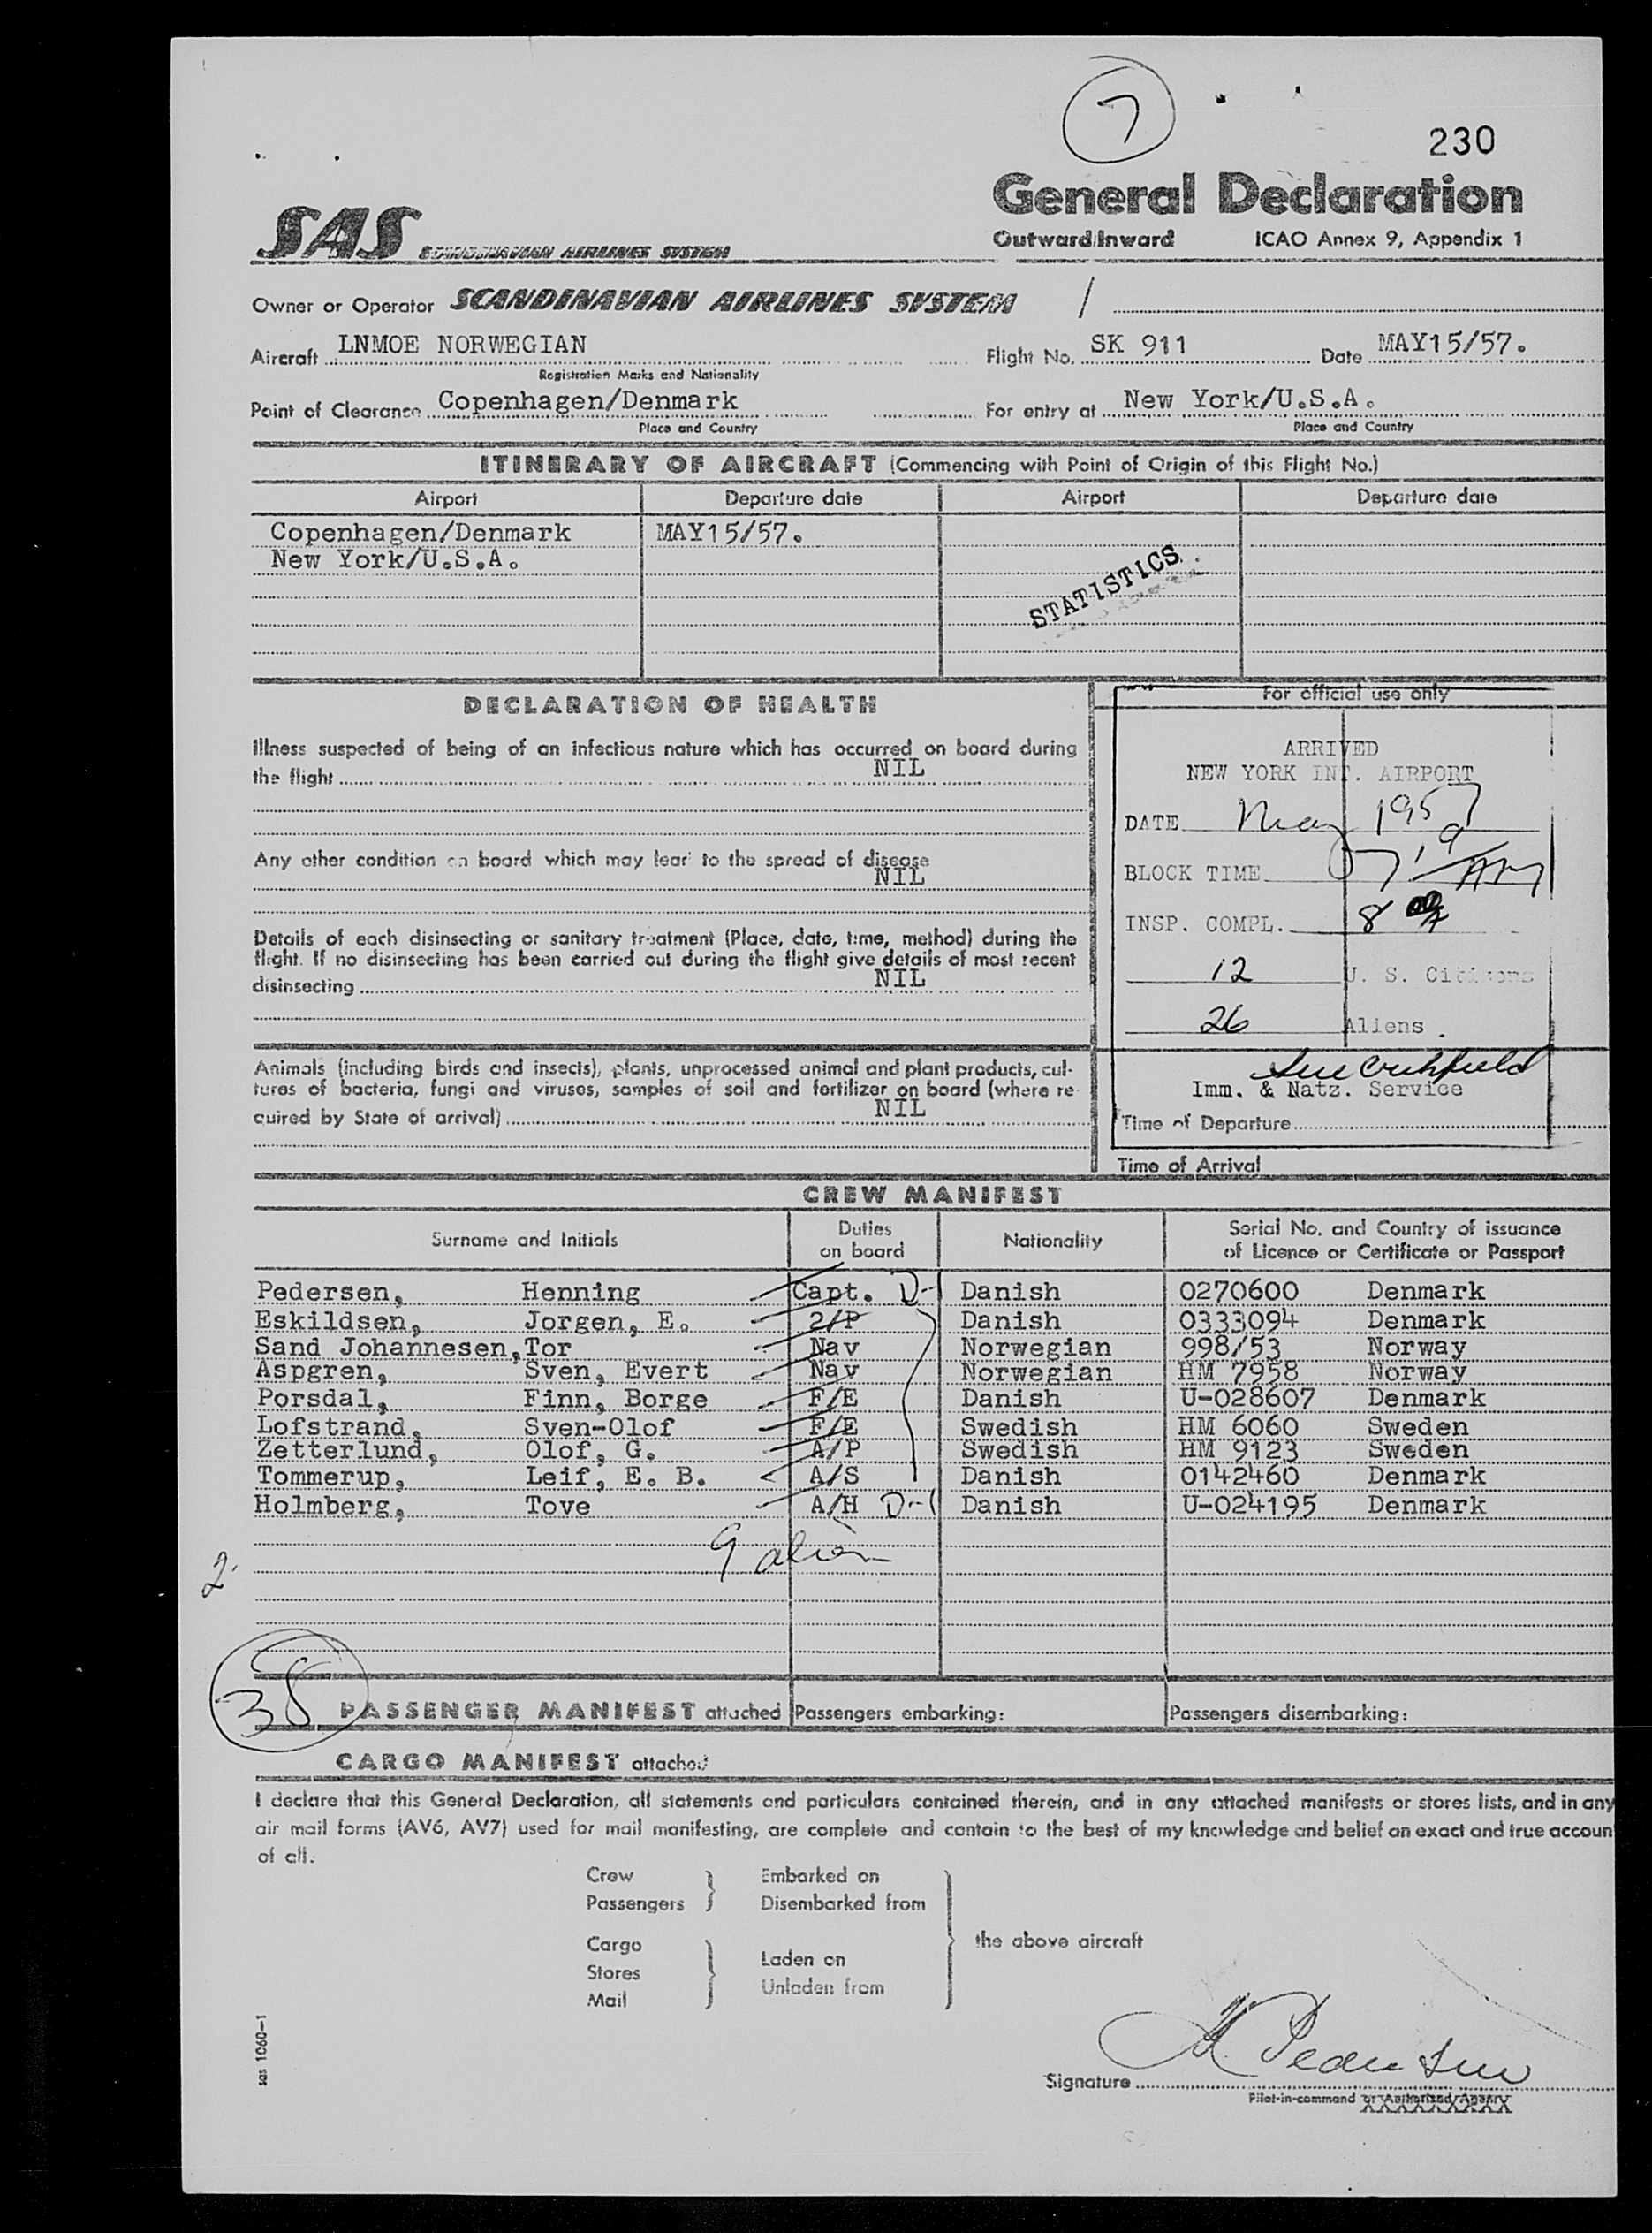 7
230
General Declaration
SAS SCANDINAVIAN AIRLINES SYSTEM
Outward/Inward ICAO Annex 9, Appendix 1
Owner or Operator SCANDINAVIAN AIRLINES SYSTEM /
Aircraft LNMOE NORWEGIAN Flight No. SK 911 Date MAY15/57.
Registration Marks and Nationality
Point of Clearance Copenhagen/Denmark For entry at New York/U.S.A.
Place and Country Place and Country
ITINERARY OF AIRCRAFT (Commencing with Point of Origin of this Flight No.)
Airport Departure date Airport Departure date
Copenhagen/Denmark MAY15/57.
New York/U.S.A.
STATISTICS
DECLARATION OF HEALTH
For official use only
Illness suspected of being of an infectious nature which has occurred on board during
the flight NIL
Any other condition on board which may lead to the spread of disease
NIL
Details of each disinsecting or sanitary treatment (Place, date, time, method) during the
flight. If no disinsecting has been carried out during the flight give details of most recent
disinsecting NIL
Animals (including birds and insects), plants, unprocessed animal and plant products, cul-
tures of bacteria, fungi and viruses, samples of soil and fertilizer on board (where re-
quired by State of arrival) NIL
ARRIVED
NEW YORK INT. AIRPORT
DATE May 1957
BLOCK TIME AM
INSP. COMPL. 8
12 U. S. Citizens
26 Aliens
Imm. & Natz. Service
Time of Departure
Time of Arrival
CREW MANIFEST
Surname and Initials Duties on board Nationality Serial No. and Country of issuance of Licence or Certificate or Passport
Pedersen, Henning Capt. D-1 Danish 0270600 Denmark
Eskildsen, Jorgen, E. 2/P Danish 0333094 Denmark
Sand Johannesen, Tor Nav Norwegian 998/53 Norway
Aspgren, Sven, Evert Nav Norwegian HM 7958 Norway
Porsdal, Finn, Borge F/E Danish U-028607 Denmark
Lofstrand, Sven-Olof F/E Swedish HM 6060 Sweden
Zetterlund, Olof, G. A/P Swedish HM 9123 Sweden
Tommerup, Leif, E. B. A/S Danish 0142460 Denmark
Holmberg, Tove A/H D-1 Danish U-024195 Denmark
9 alien
2
38
PASSENGER MANIFEST attached Passengers embarking: Passengers disembarking:
CARGO MANIFEST attached
I declare that this General Declaration, all statements and particulars contained therein, and in any attached manifests or stores lists, and in any
air mail forms (AV6, AV7) used for mail manifesting, are complete and contain to the best of my knowledge and belief an exact and true accoun
of all.
Crew Embarked on
Passengers Disembarked from
the above aircraft
Cargo
Stores Laden on
Mail Unladen from
sas 1060-1
Signature H Pedersen
Pilot-in-command or Authorized Agent